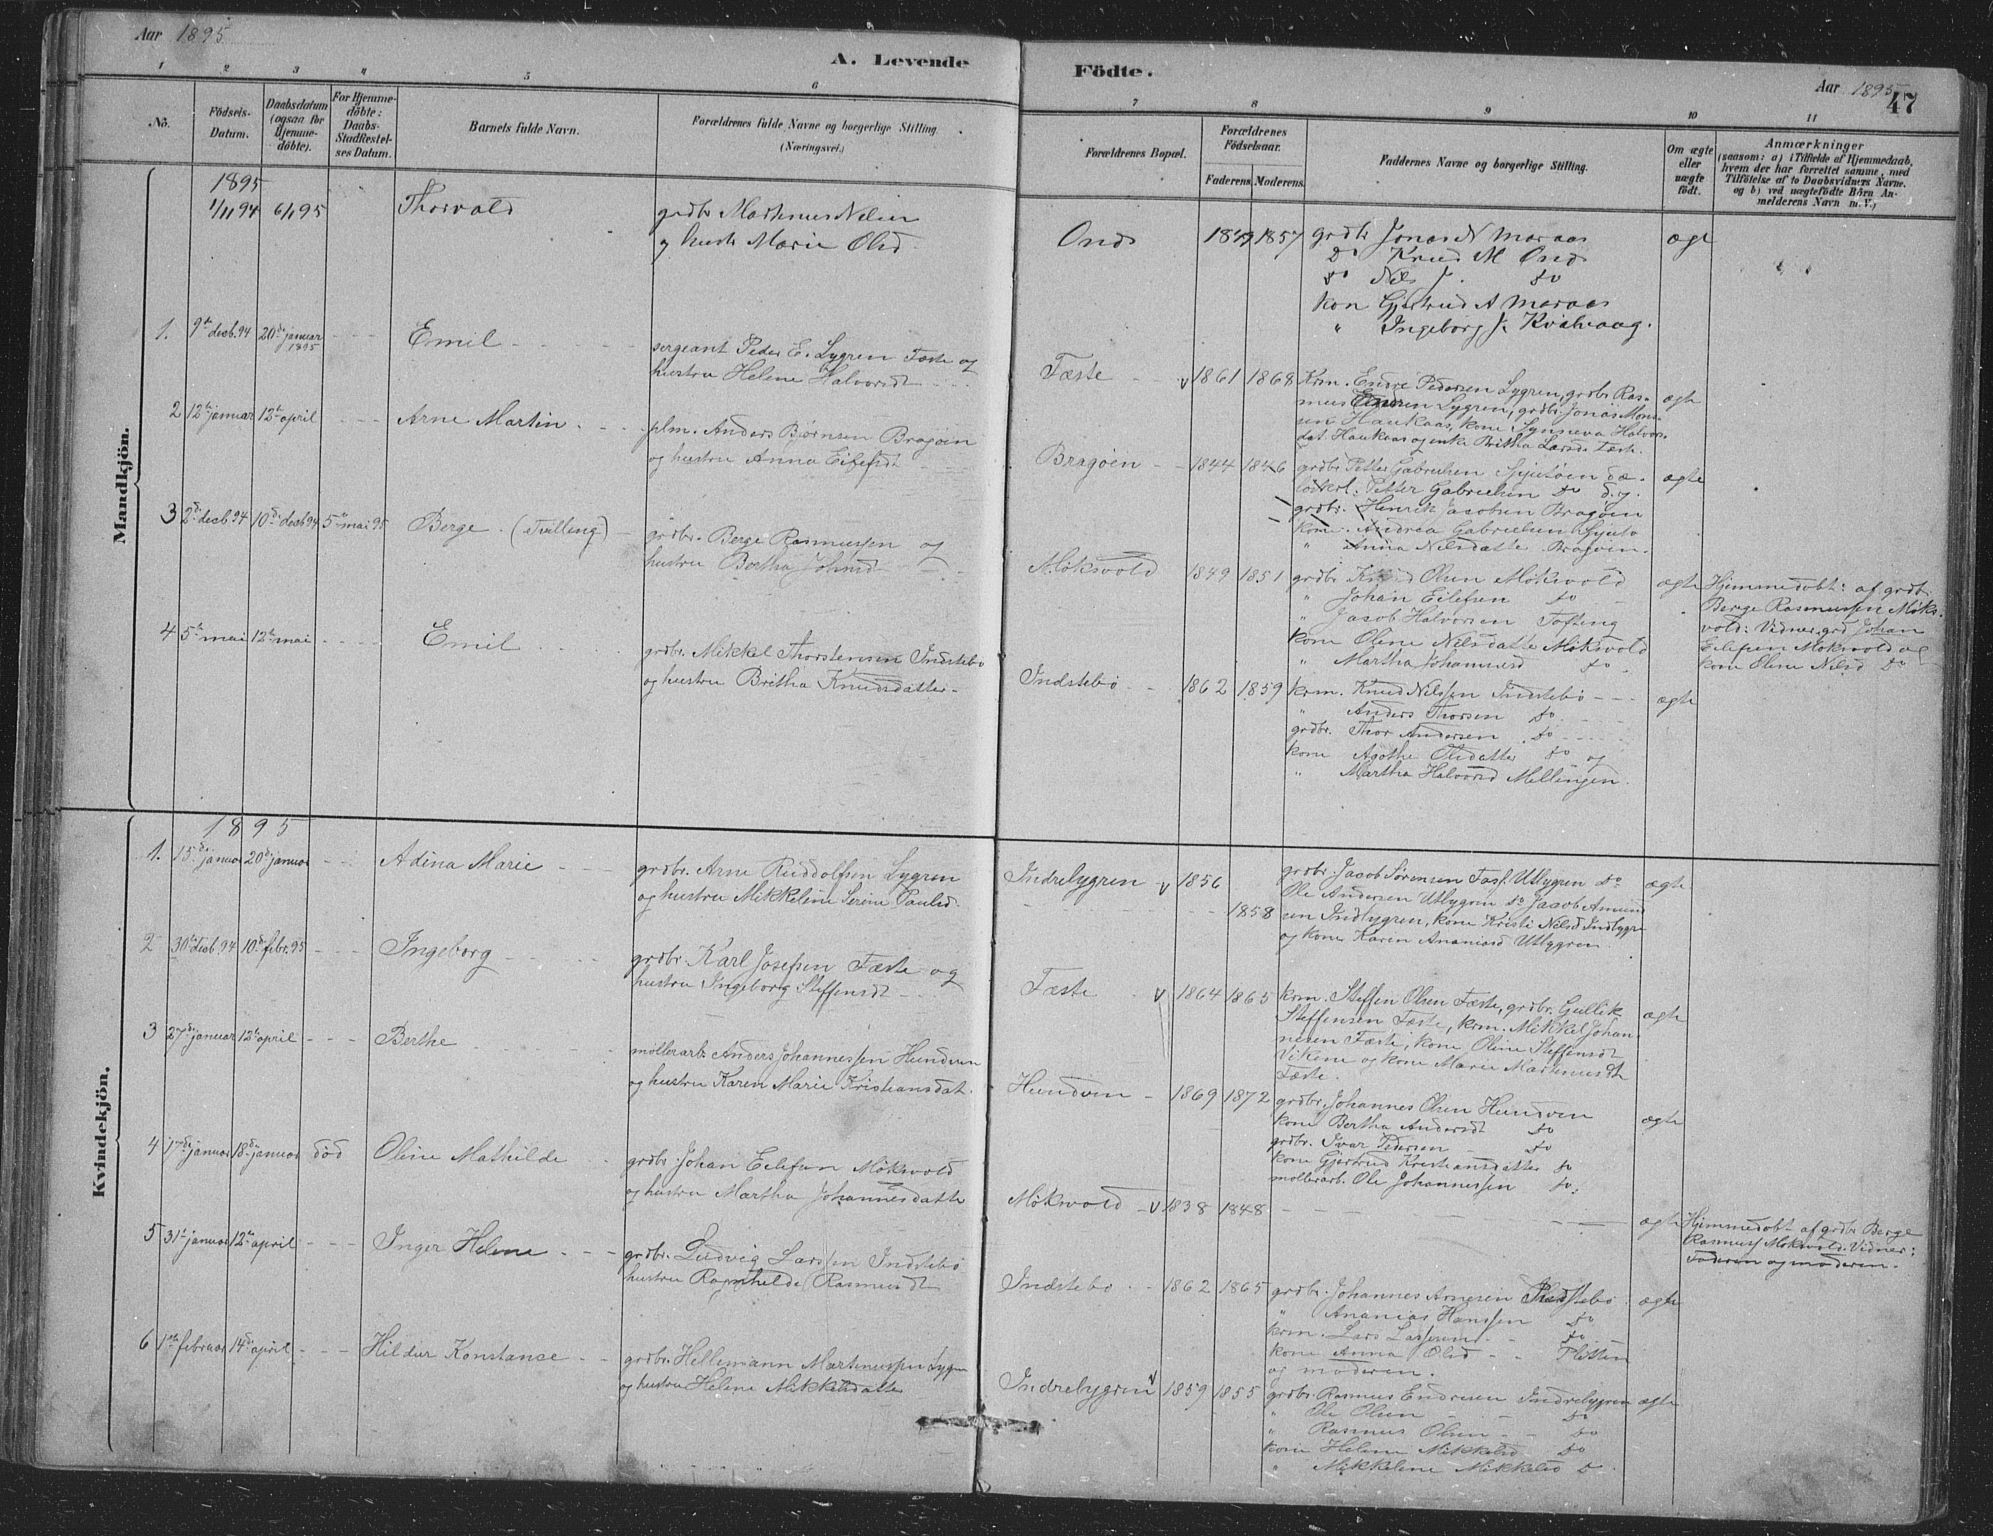 Aar 1895
A. Levende
Födte.
Aar 1895
47
1 2 3 4 5 6 7 8 9 10 11
No.
Födsels-
Datum.
Daabsdatum
(ogsaa for
Hjemme-
döbte).
For Hjemme-
döbte:
Daabs-
Stadfæstel-
ses Datum.
Barnets fulde Navn.
Forældrenes fulde Navne og borgerlige Stilling.
(Næringsvei.)
Forældrenes Bopæl.
Forældrenes
Födselsaar.
Faderens. Moderens.
Faddernes Navne og borgerlige Stilling.
Om ægte
eller
uægte
födt.
Anmærkninger
(saasom: a) i Tilfælde af Hjemmedaab,
hvem der har forrettet samme, med
Tilföielse af to Daabsvidners Navne.
og b) ved uægtefödte Börn An-
melderens Navn m. V.)
Mandkjön.
1895
1/11 94 6/1 95 Thorvald
grdbr Martinus Nelsen
og hustr Marie Olsd.
Onds 1849 1857
grdbr Jonas N Maraas
Do Knud M Onds
do Nils J. do
kon Gjertrud A Maraas
" Ingeborg J. Kvalvaag.
ægt
1. 9de decb. 94 20de januar
1895
Emil
sergeant Peder E. Lygren Fæste og
hustru Helene Halvorsdt
Fæste v 1861 1868
Krm. Endre Pedersen Lygren, grdbr. Ras-
mus Endresen Lygren, grdbr. Jonas Mon-
sen Haukaas, kone Synneva Halvors-
dat. Haukaas og enke Britha Larsd. Fæste
ægte
2 12te januar 12te april Arne Martin
plm. Anders Bjørnsen Bragøen
og hustru Anna Eilefsdt
Bragøen 1844 1846
grdbr. Petter Gabrielsen
Petter Gabrielsen do
grdbr. Henrik Jacobsen Bragøen
kone. Andrea Gabrielsen
" Anna Nilsdatte Bragøen.
ægte
3 2de decb 94 10de decb 94 5te mai 95 Berge (Tvilling)
grdbr. Berge Rasmussen og
hustru Bertha Johnsd
Møksvold 1849 1851
grdbr. Knud Olsen Møksvold
" Johan Eilefsen do
" Jacob Halvorsen Tofting
kone Oline Nilsdatte Møksvold
" Martha Johannesd do
ægte
Hjemmedøbt: af grdbr.
Berge Rasmussen Møks-
vold: Vidner, grd Johan
Eilefsen Møksvold og
kone Oline Nilsd do
4 5te mai 12te mai Emil
grdbr. Mikkel Thorstensen Indstebø
og hustru Britha Knudsdatter
Indstebø 1862 1859
krm. Knud Nilssen Indstebø
" Anders Thorsen do.
grdbr. Thor Andersen do
kone Agothe Olsdatte do og
" Martha Halvorsd Mellingen.
ægte
Kvindekjön.
1895
1. 15de januar 20de januar Adina Marie
grdbr. Arne Ruddolfsen Lygren
og hustru Mikkeline Serine Paulsd.
Indrelygren v 1856
1858
grdbr. Jacob Sørensen Utlygren do
Ole Andersen Utlygren do Jacob Amund
sen Indlygren, kone Kristi Nilsd Indlygre
og kone Karen Ananiasd Utlygren.
ægte
2 30te decb 94 10de febr. 95 Ingeborg
grdbr. Karl Josefsen Fæste og
hustru Ingeborg Steffensdt
Fæste v 1864 1865
krm. Steffen Olsen Fæste, grdbr. Gullik
Steffensen Fæste, krm. Mikkel Johan-
nesen Fæste, kone Oline Steffensdt
Vikene og kone Marie Martinusdt
Fæste.
ægte
3 27de januar 12te april Berthe
møllerarb. Anders Johannessen Hundven
og hustru Karen Marie Kristiansdat.
Hundven 1869 1872
grdbr. Johannes Olsen Hundven
kone Bertha Andersdt do
grdbr. Ivar Pedersen do
kone Gjertrud Kristiansdatte do
møllerarb. Ole Johannessen do.
ægte
4 17de januar 18de januar död Oline Mathilde
grdbr. Johan Eilefsen Møksvold
og hustru Martha Johannesdatte
Møksvold v 1838 1848
ægte
Hjemmedøbt af grdbr. Berge
Rasmuss Møksvold. Vidner:
Faderen og moderen.
5 31te januar 12te april Inger Helene
grdbr. Ludvig Larssen Indstebø
hustru Ragnhilde Rasmusdt
Indstebø 1862 1865
grdbr. Johannes Arnesen Indstebø
" Ananias Hanssen do
krm. Lars Larssen do.
kone Anna Olsd Flatten
og moderen.
ægte
6 1ste februar 14de april Hildur Konstanse
grdbr. Hellemann Martinussen Lygren
og hustru Helene Mikkelsdatte
Indrelygren v 1859 1855
grdbr. Rasmus Endresen Indrelygren
" Ole Olsen do
" Rasmus Olsen do
kone Helene Mikkelsd do
" Mikkeline Mikkelsd do
ægte